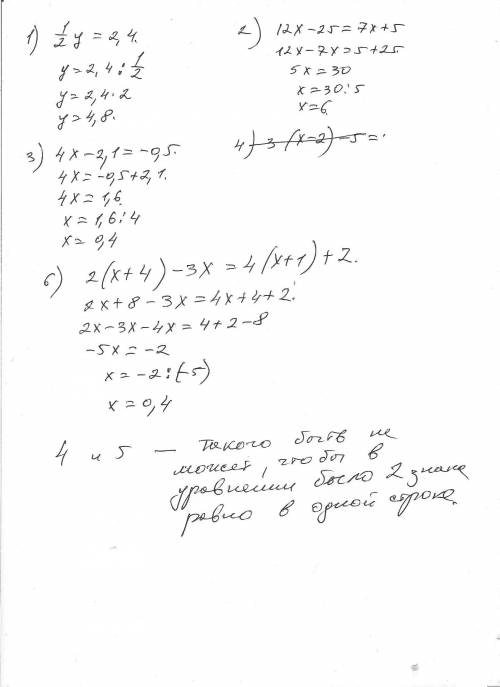 1) 1/2 y = 2,4.
y = 2,4 : 1/2
y = 2,4 · 2
y = 4,8.
2) 12x - 25 = 7x + 5
12x - 7x = 5 + 25
5x = 30
x = 30 : 5
x = 6.
3) 4x - 2,1 = -0,5.
4x = -0,5 + 2,1.
4x = 1,6.
x = 1,6 : 4
x = 0,4
4) 3(x-2) - 5 =
6) 2(x+4) - 3x = 4(x+1) + 2.
2x + 8 - 3x = 4x + 4 + 2.
2x - 3x - 4x = 4 + 2 - 8
-5x = -2
x = -2 : (-5)
x = 0,4
4 и 5 — такого быть не
может, что бы в
уравнении было 2 знака
равно в одной строке.